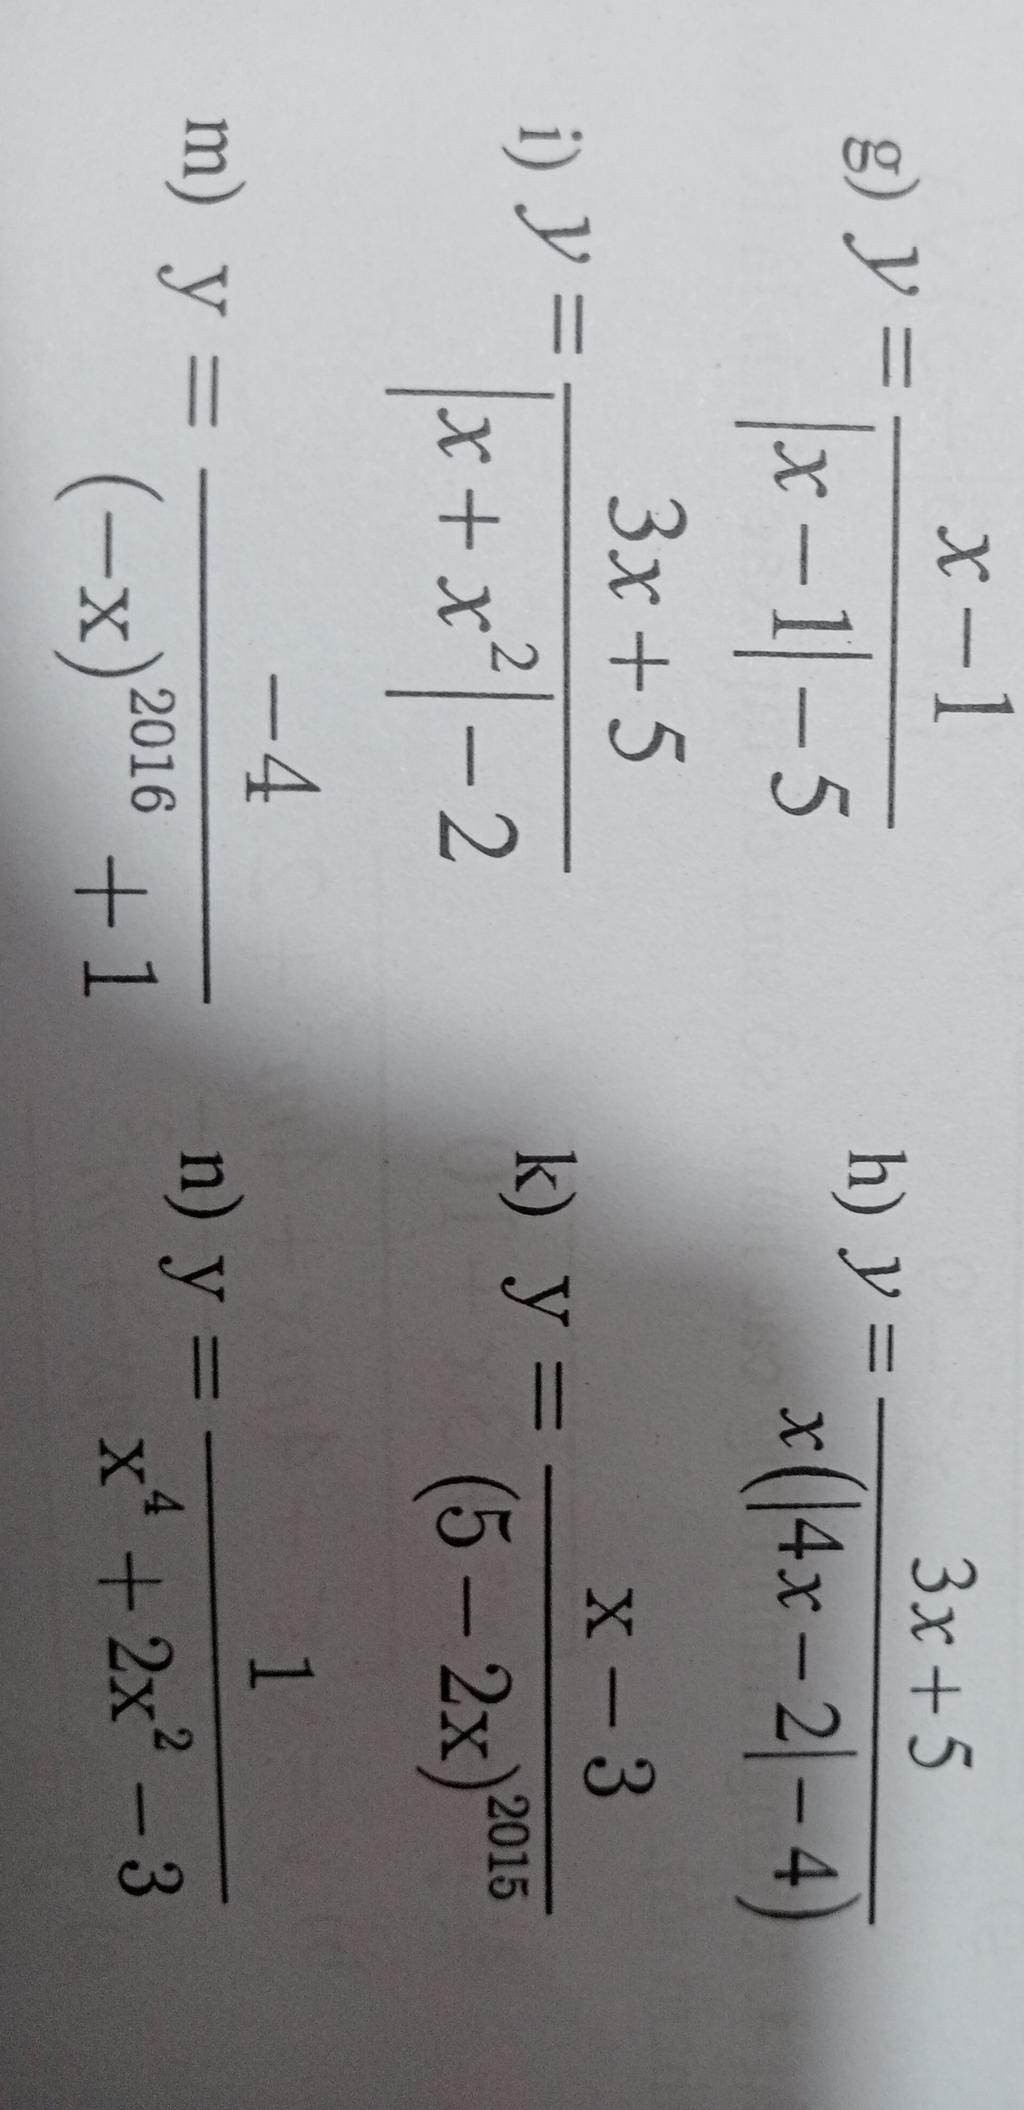 g) y = \frac{x - 1}{|x - 1| - 5}
h) y = \frac{3x + 5}{x(|4x - 2| - 4)}
i) y = \frac{3x + 5}{|x + x^2| - 2}
k) y = \frac{x - 3}{(5 - 2x)^{2015}}
m) y = \frac{-4}{(-x)^{2016} + 1}
n) y = \frac{1}{x^4 + 2x^2 - 3}